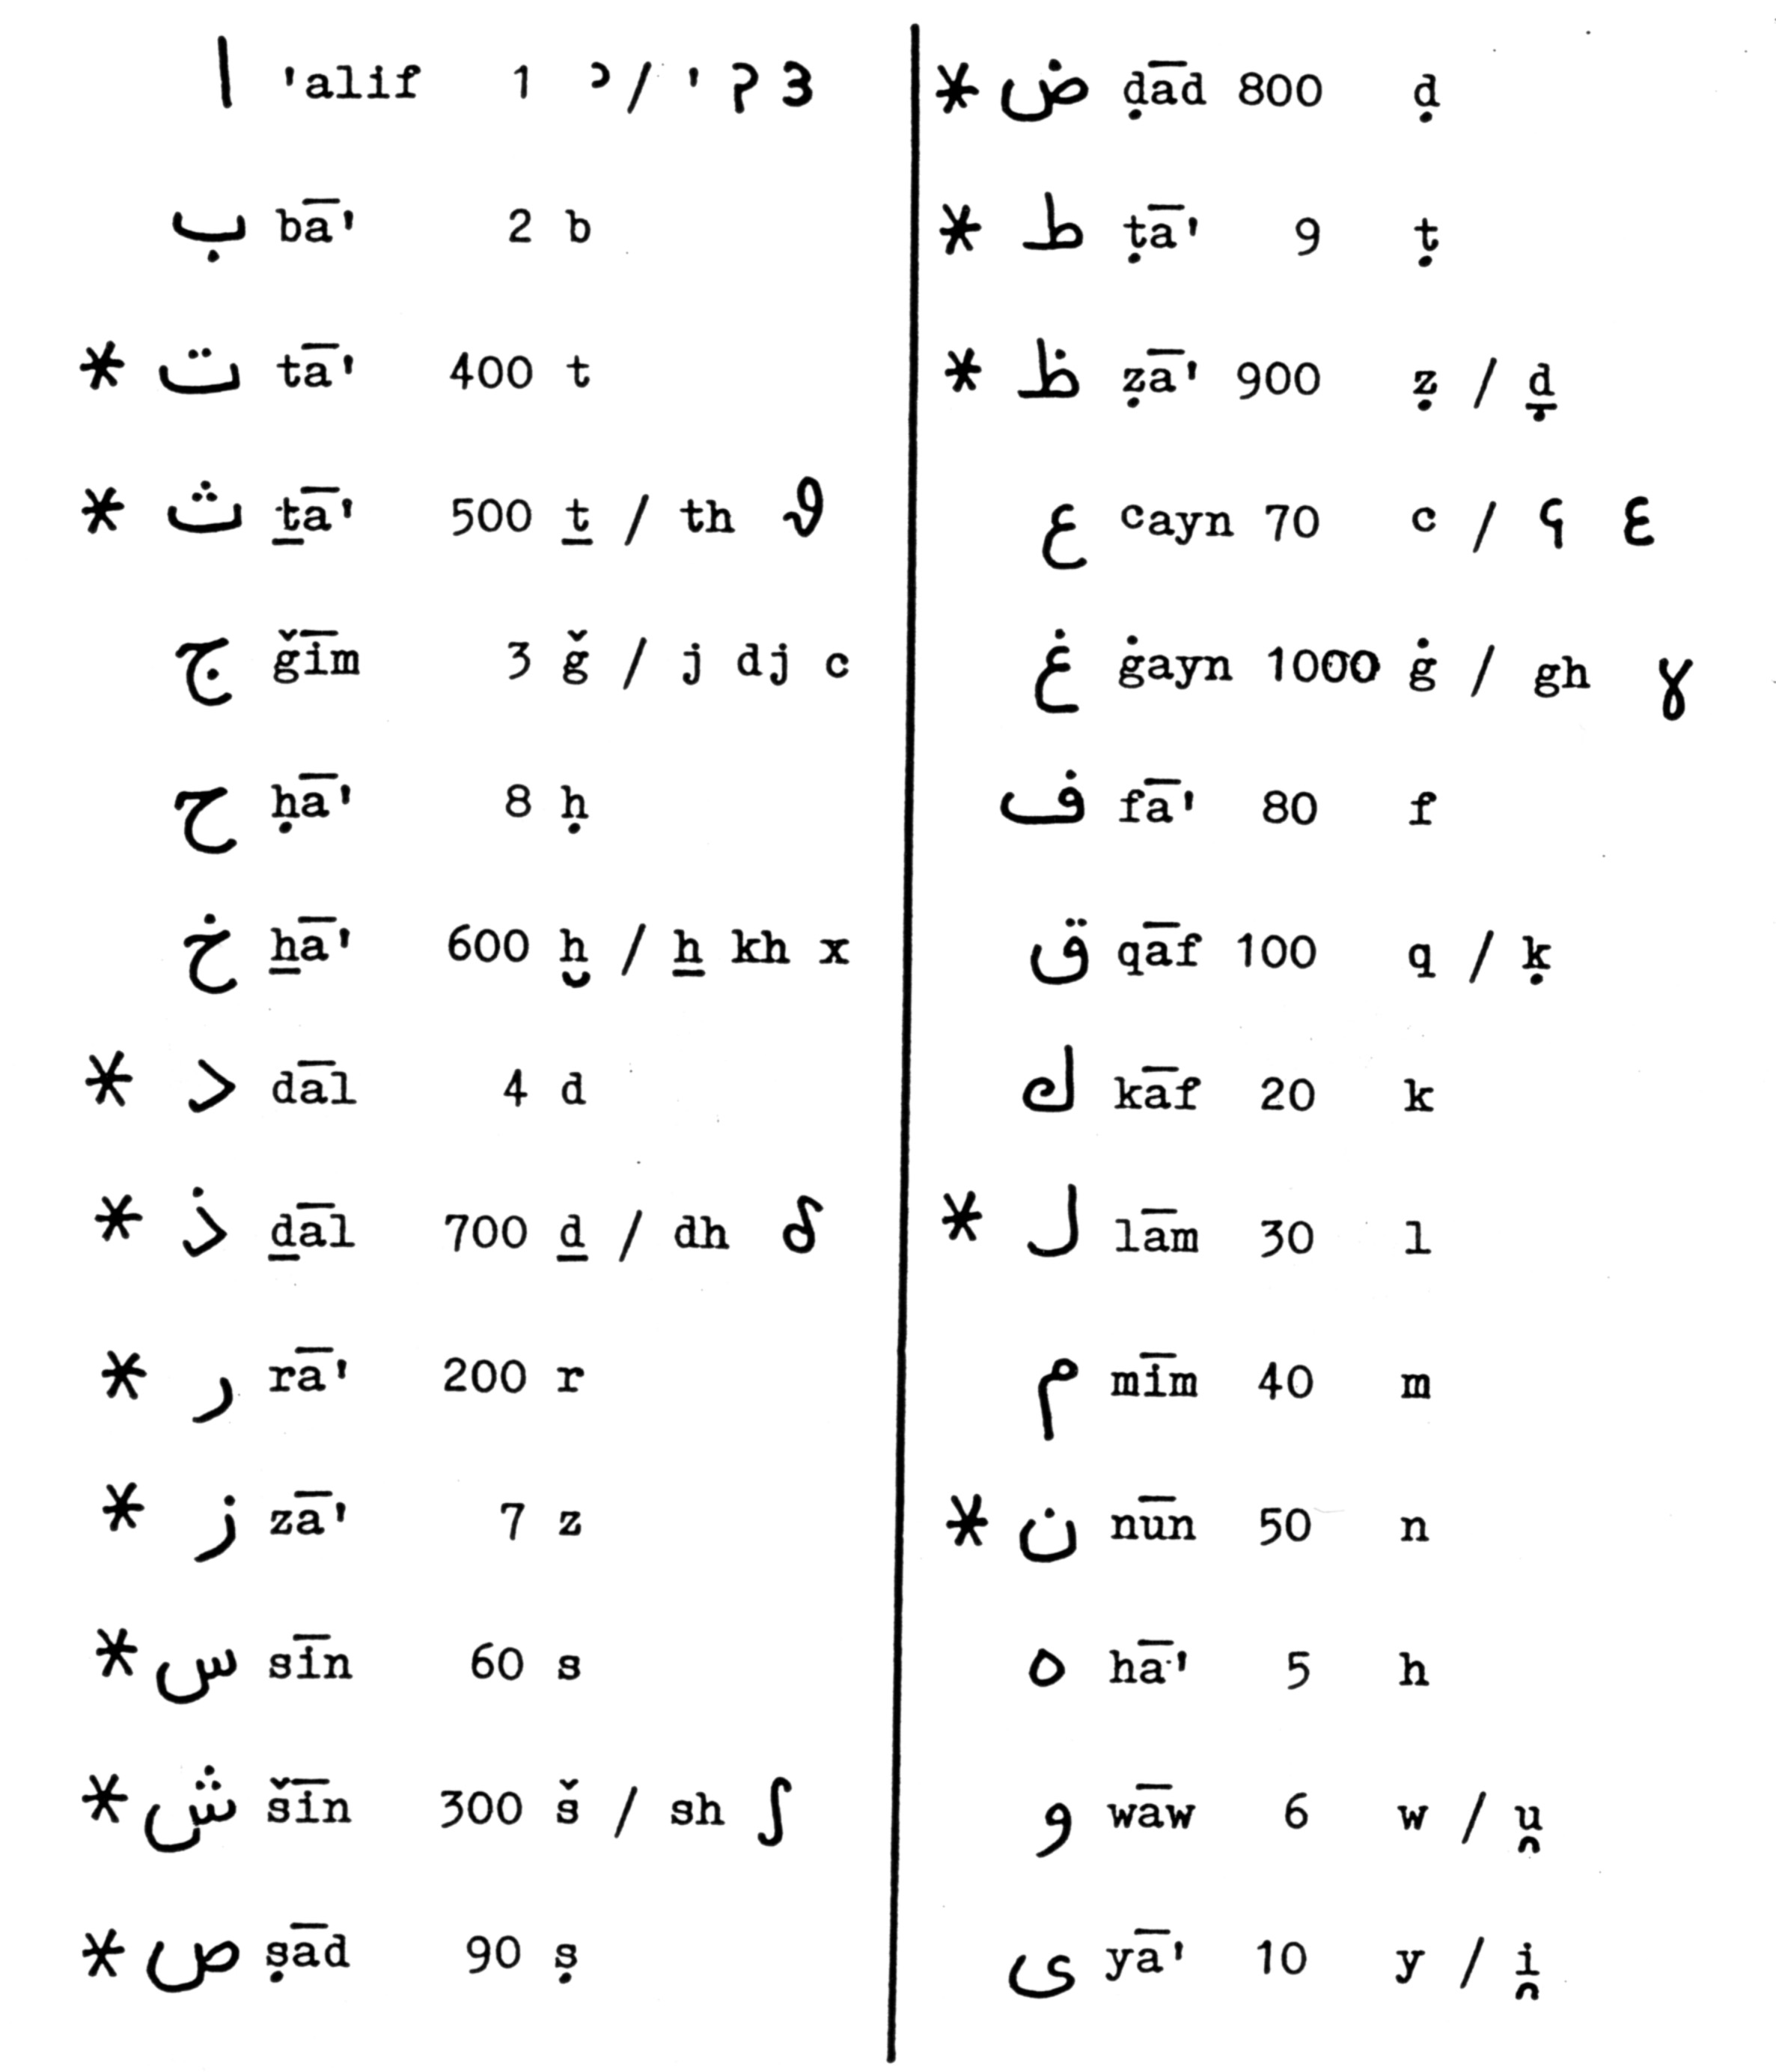 ا 'alif 1 ʾ / ' ʔ 3
ب bā' 2 b
* ت tā' 400 t
* ث ṯā' 500 ṯ / th ϑ
ج ǧīm 3 ǧ / j dj c
ح ḥā' 8 ḥ
خ ẖā' 600 ḫ / ẖ kh x
* د dāl 4 d
* ذ ḏāl 700 ḏ / dh δ
* ر rā' 200 r
* ز zā' 7 z
* س sīn 60 s
* ش šīn 300 š / sh ʃ
* ص ṣād 90 ṣ
* ض ḍād 800 ḍ
* ط ṭā' 9 ṭ
* ظ ẓā' 900 ẓ / ḏ̣
ع ᶜayn 70 ᶜ / ʕ ع
غ ġayn 1000 ġ / gh ɣ
ف fā' 80 f
ق qāf 100 q / ḳ
ك kāf 20 k
* ل lām 30 l
م mīm 40 m
* ن nūn 50 n
ه hā' 5 h
و wāw 6 w / u̯
ى yā' 10 y / i̯